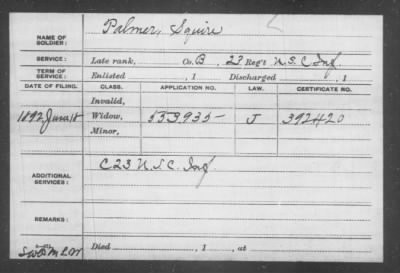 NAME OF SOLDIER: Palmer, Squire
SERVICE: Late rank, Co. B, 23 Reg't U.S.C. Inf.
TERM OF SERVICE: Enlisted , 1 Discharged , 1
DATE OF FILING. CLASS. APPLICATION NO. LAW. CERTIFICATE NO.
Invalid,
1892 June 18 Widow, 553935 J 392420
Minor,
ADDITIONAL SERVICES: C 23 U.S.C. Inf
REMARKS:
Died , 1 , at